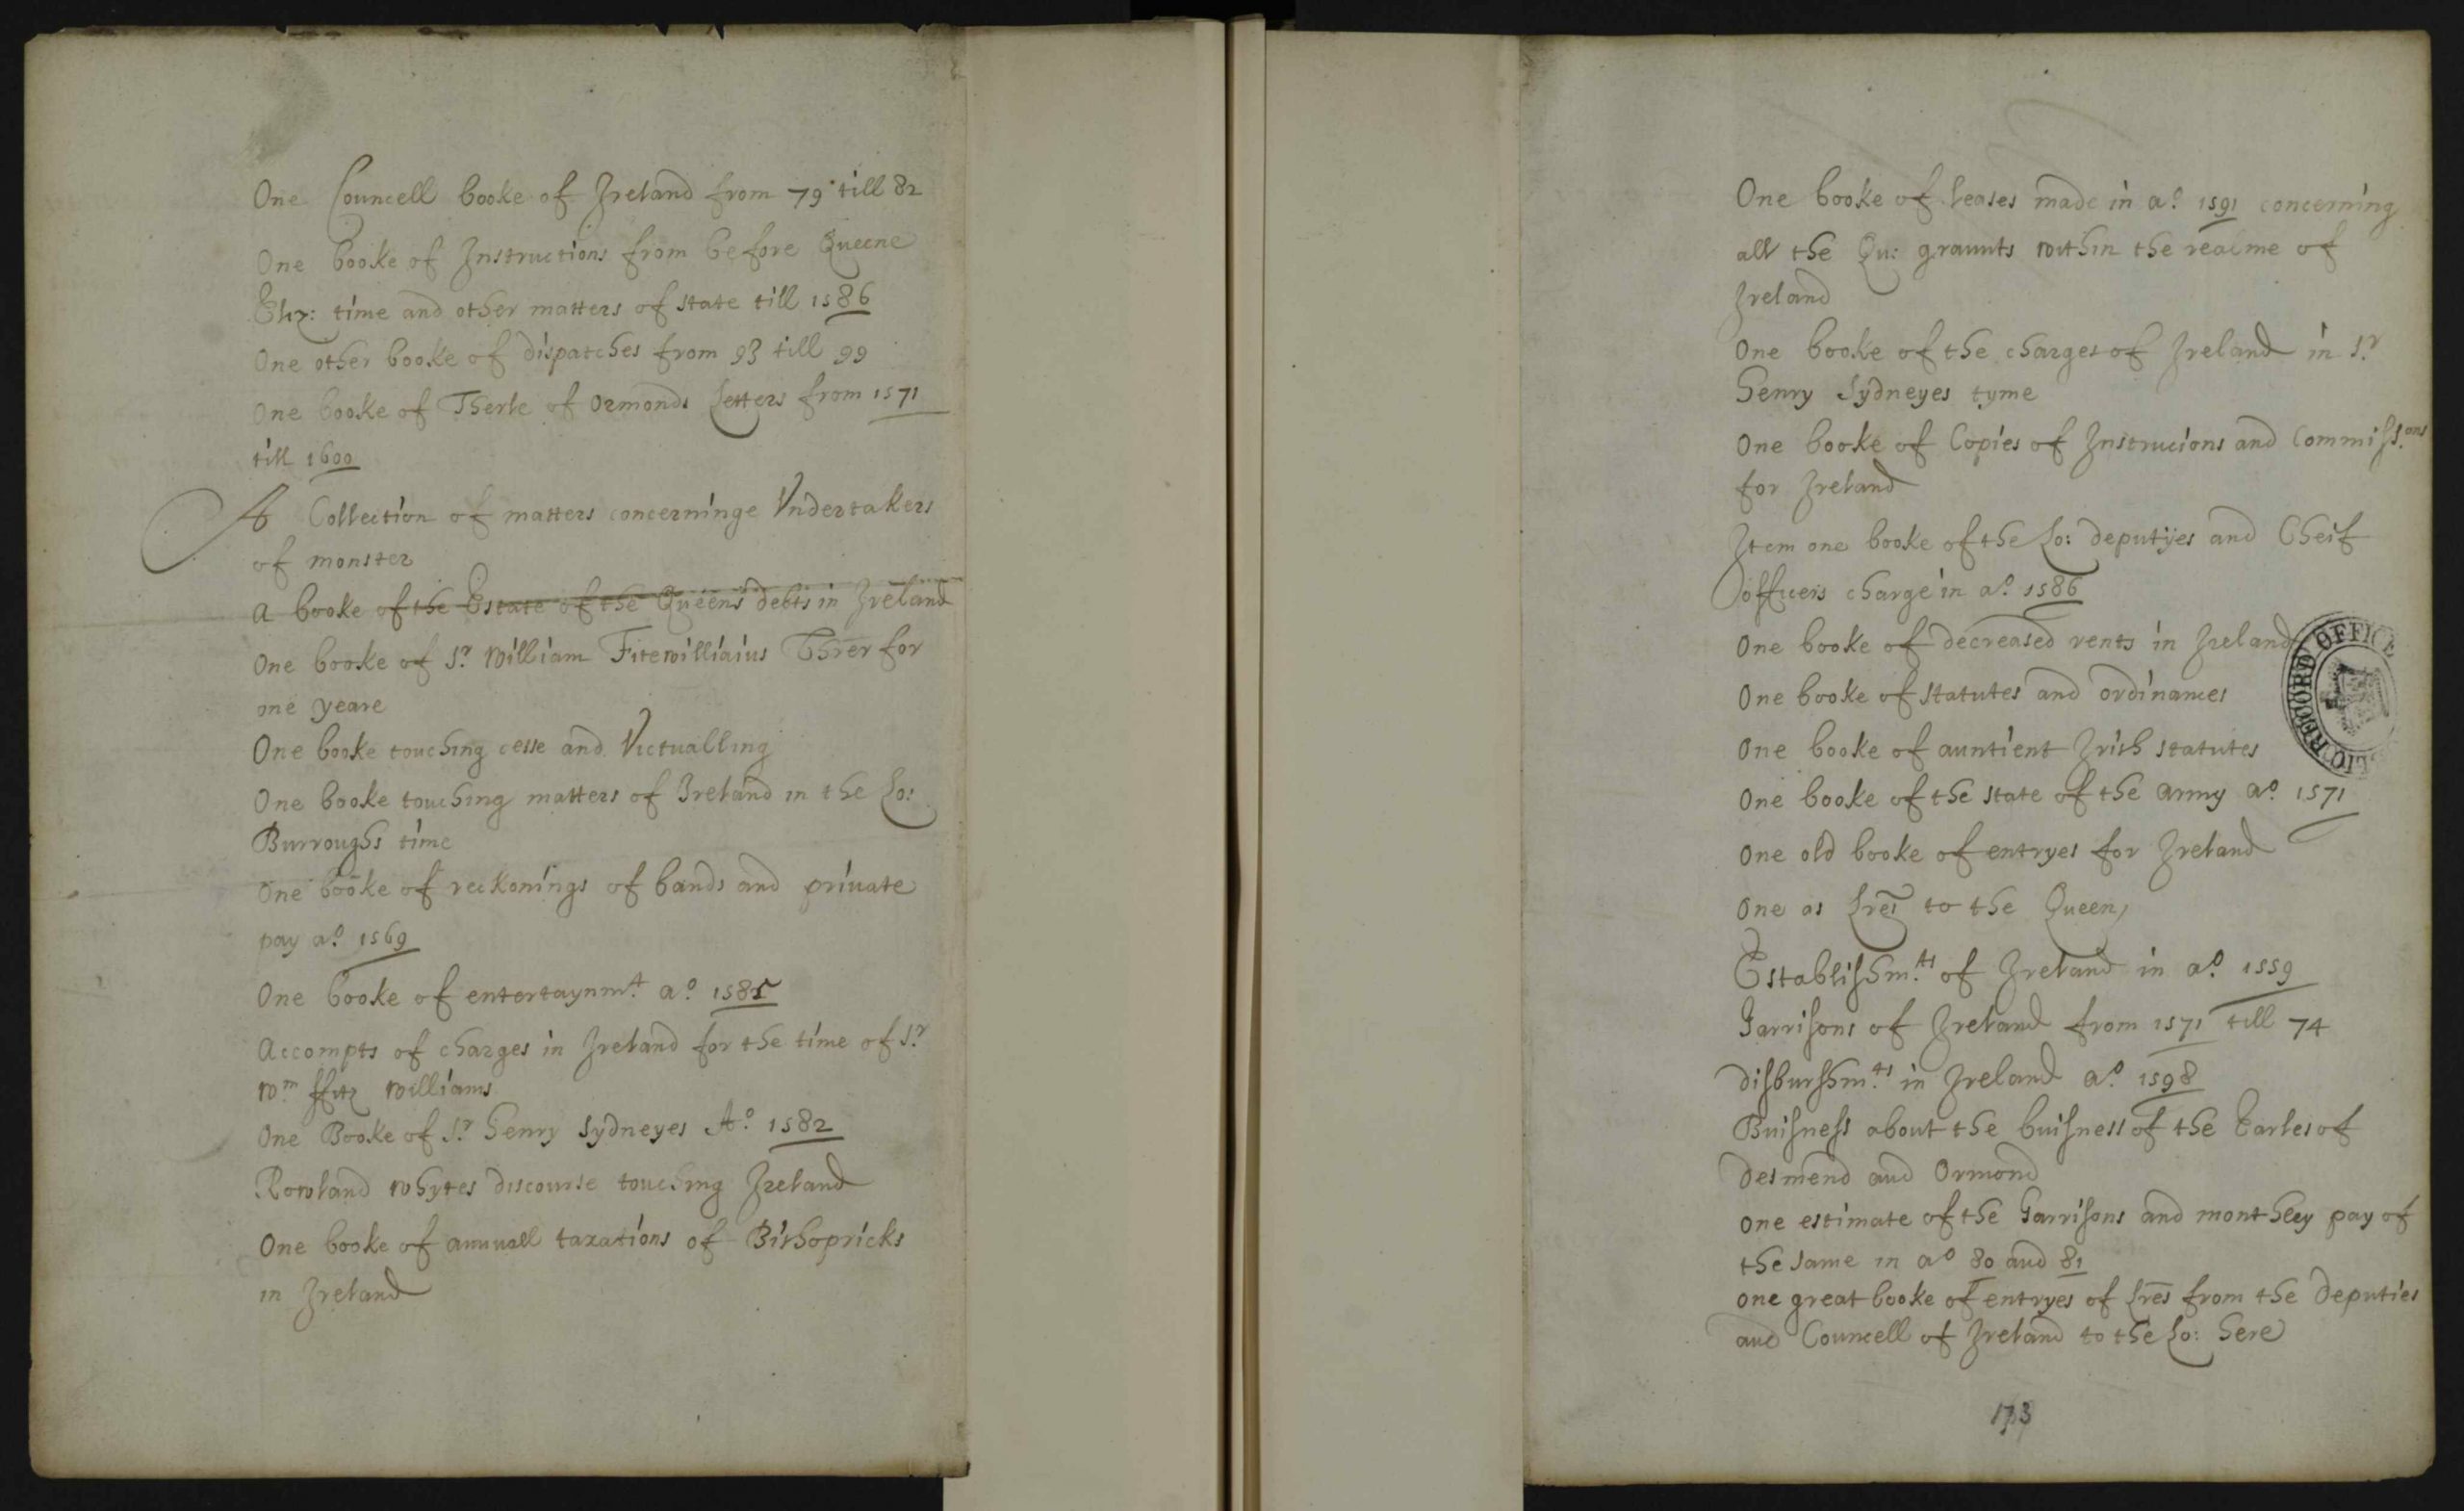 One Councell booke of Ireland from 79 till 82
One booke of Instructions from before Queene
Eliz: time and other matters of state till 1586
One other booke of dispatches from 93 till 99
One booke of Therle of Ormonds Letters from 1571
till 1600
A Collection of matters concerninge Vndertakers
of monster
a booke of the Estate of the Queens debts in Ireland
One booke of Sr. William Fitzwilliaius Threr for
one yeare
One booke touching cesse and Victualling
One booke touching matters of Ireland in the Lo:
Burroughs time
One booke of reckonings of bands and priuate
pay ao. 1569
One booke of entertaynmt. ao. 1585
Accompts of charges in Ireland for the time of Sr.
Wm ffitz Williams
One Booke of Sr. Henry Sydneyes Ao. 1582
Rowland Whytes discourse touching Ireland
One booke of annuall taxations of Bishopricks
in Ireland
One booke of leases made in ao. 1591 concerning
all the Qu: graunts within the realme of
Ireland
One booke of the charges of Ireland in Sr.
Henry Sydneyes tyme
One booke of Copies of Instrucions and Commiss.ons
for Ireland
Item one booke of the Lo: deputyes and Cheif
officers charge in ao. 1586
One booke of decreased rents in Ireland
One booke of statutes and ordinances
One booke of auntient Irish statutes
One booke of the state of the army ao. 1571
One old booke of entryes for Ireland
One as Lres to the Queen,
Establishmts. of Ireland in ao. 1559
Garrisons of Ireland from 1571 till 74
disburshmts. in Ireland ao. 1598
Buisness about the buisness of the Earles of
desmend and Ormond
One estimate of the Garrisons and monthley pay of
the same in ao 80 and 81
One great booke of entryes of Lres from the Deputies
and Councell of Ireland to the Lo: here
RECORD OFFICE